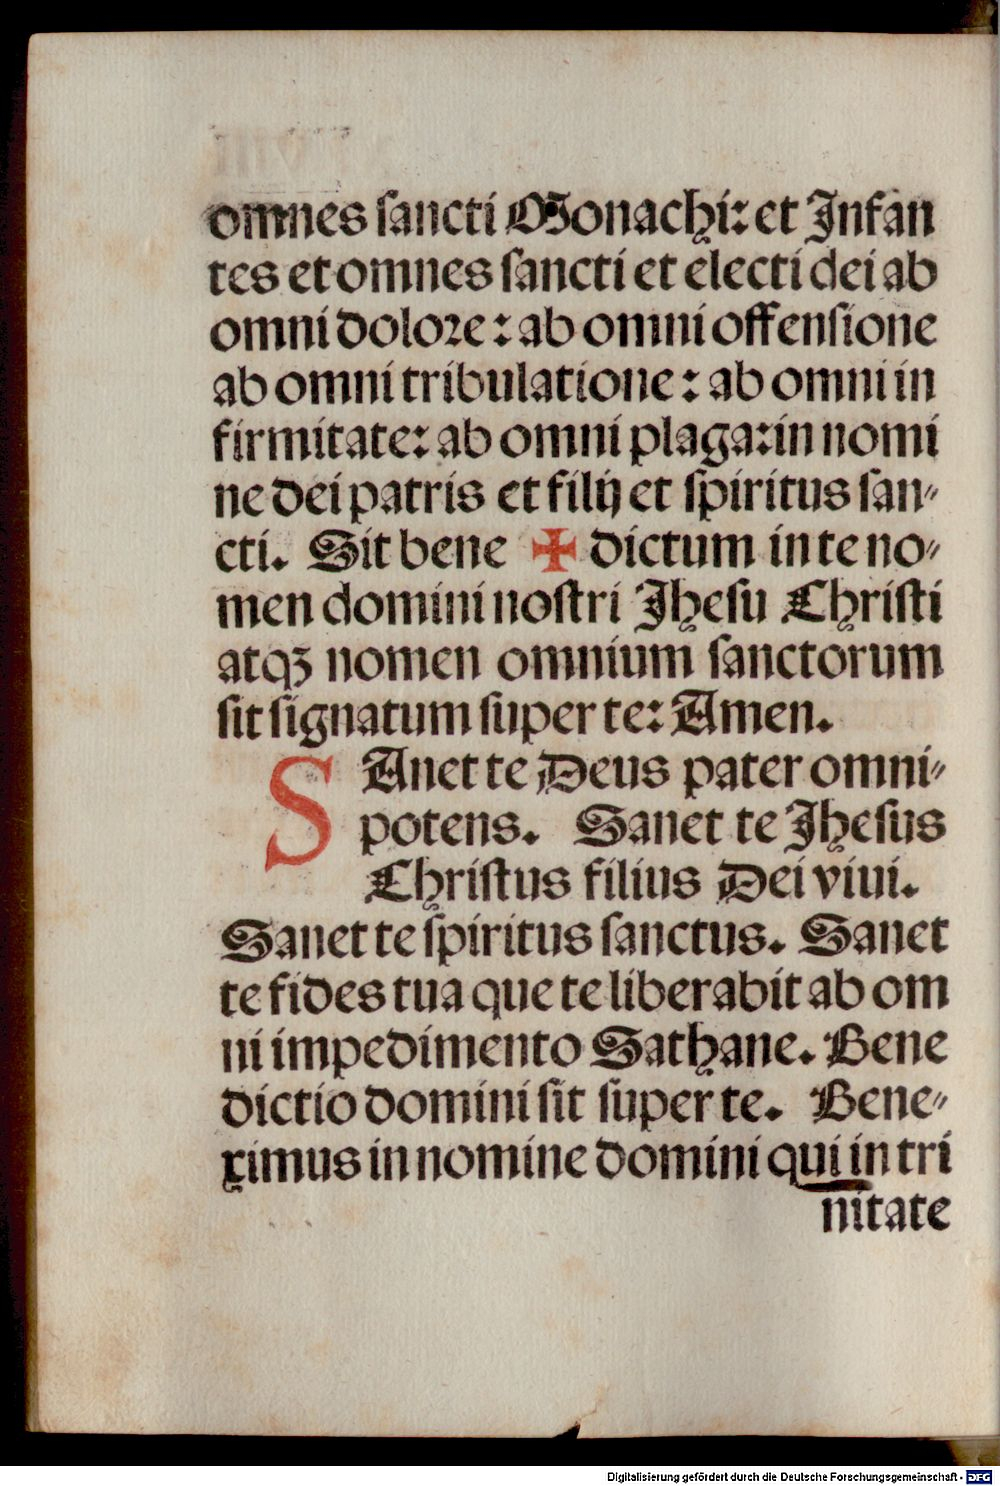 omnes sancti Monachi: et Infan
tes et omnes sancti et electi dei ab
omni dolore: ab omni offensione
ab omni tribulatione: ab omni in
firmitate: ab omni plaga: in nomi
ne dei patris et filij et spiritus san-
cti. Sit bene ✠ dictum in te no-
men domini nostri Jhesu Christi
atqꝫ nomen omnium sanctorum
sit signatum super te: Amen.
SAnet te Deus pater omni-
potens. Sanet te Jhesus
Christus filius Dei viui.
Sanet te spiritus sanctus. Sanet
te fides tua que te liberabit ab om
ni impedimento Sathane. Bene
dictio domini sit super te. Bene-
ximus in nomine domini qui in tri
nitate
Digitalisierung gefördert durch die Deutsche Forschungsgemeinschaft - DFG